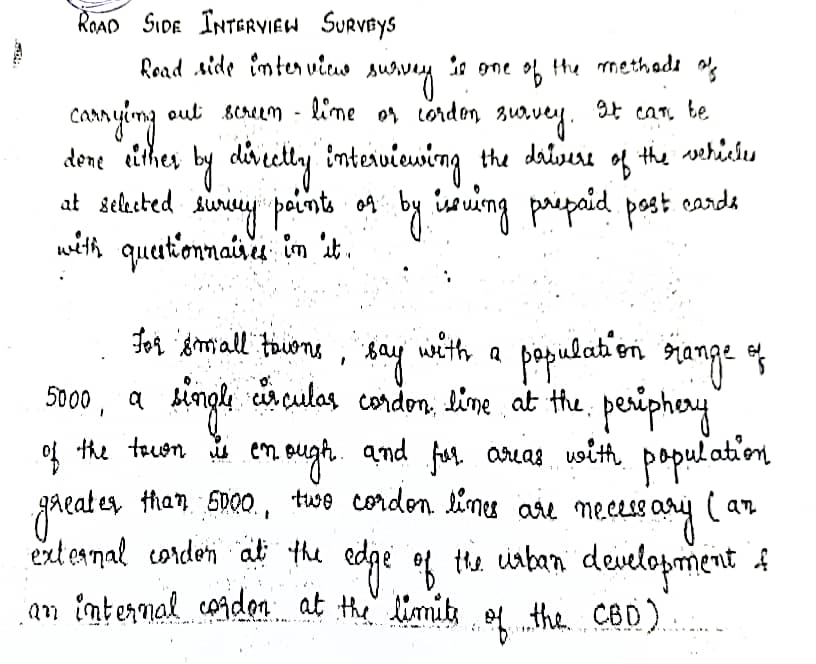 ROAD SIDE INTERVIEW SURVEYS
Road side interview survey is one of the methods of
carrying out screen - line or cordon survey. It can be
done either by directly interviewing the drivers of the vehicles
at selected survey points or by issuing prepaid post cards
with questionnaires in it.
For small towns, say with a population range of
5000, a single circular cordon line at the periphery
of the town is enough and for areas with population
greater than 5000, two cordon lines are necessary (an
external cordon at the edge of the urban development &
an internal cordon at the limits of the CBD)